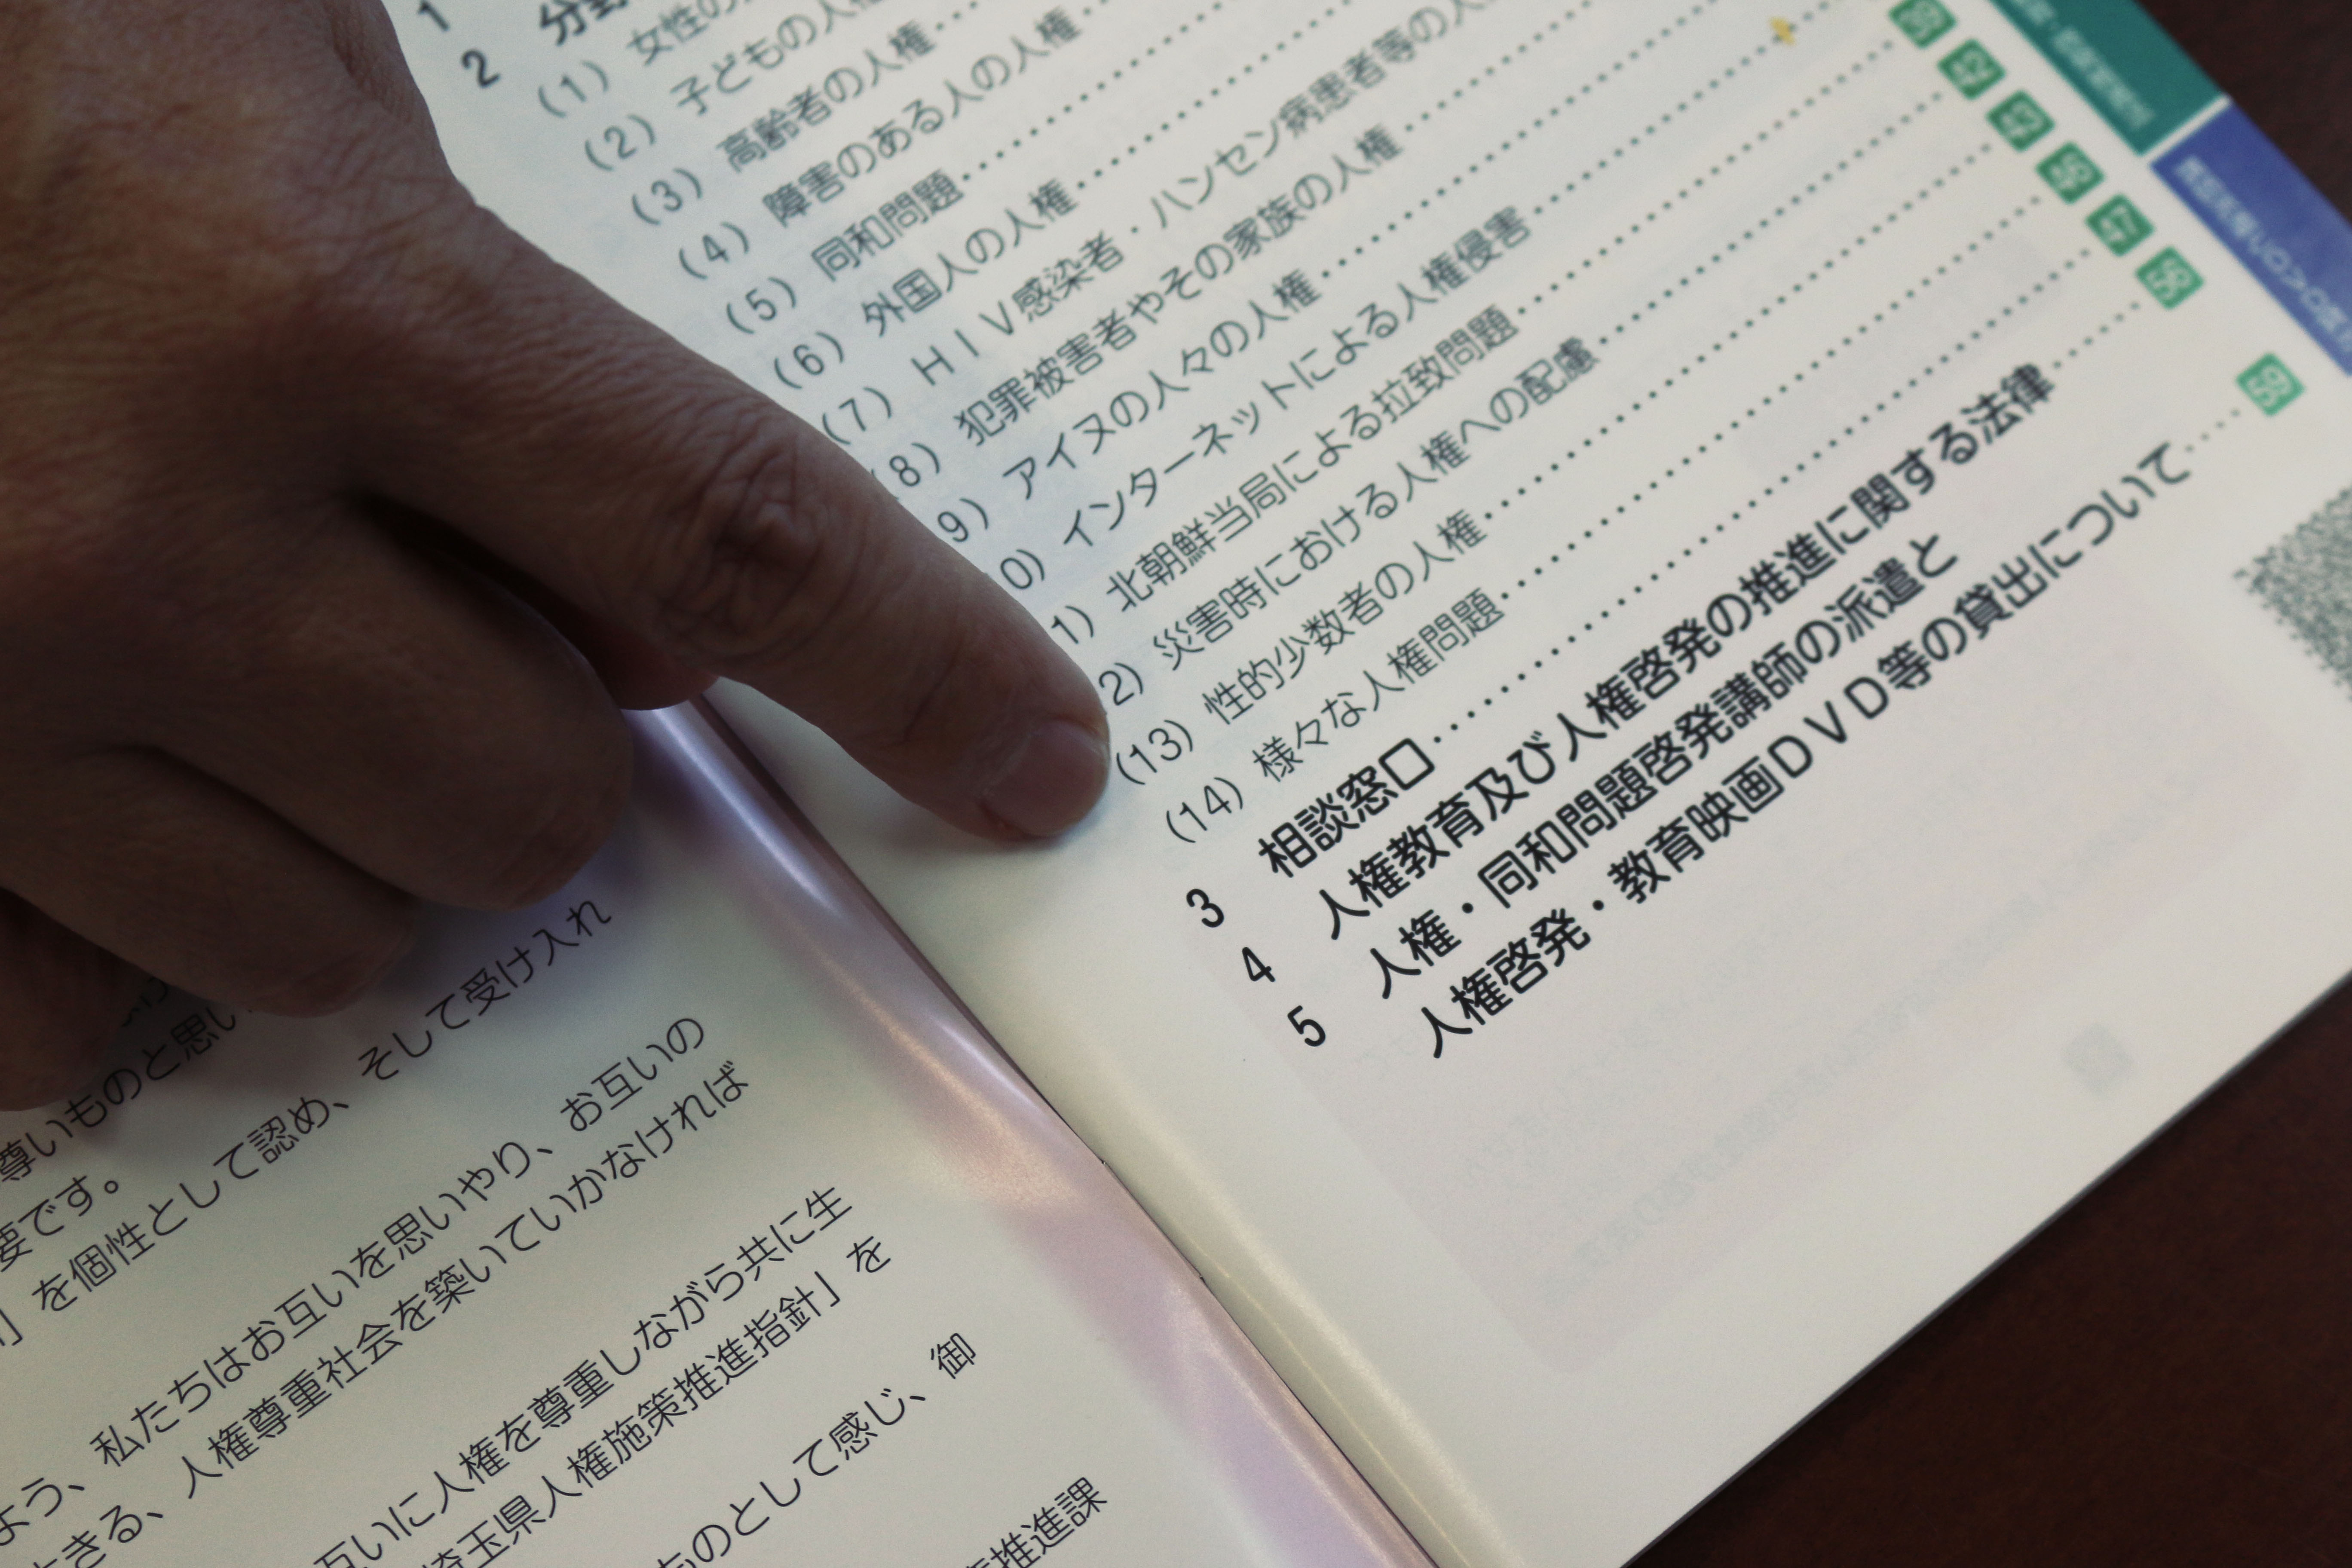 1
2 分野
(1) 女性の
(2) 子どもの人権
(3) 高齢者の人権
(4) 障害のある人の人権
(5) 同和問題
(6) 外国人の人権
(7) HIV感染者・ハンセン病患者等の人
8) 犯罪被害者やその家族の人権
9) アイヌの人々の人権
0) インターネットによる人権侵害 39
1) 北朝鮮当局による拉致問題 42
2) 災害時における人権への配慮 43
(13) 性的少数者の人権 46
(14) 様々な人権問題 47
3 相談窓口 56
4 人権教育及び人権啓発の推進に関する法律
5 人権・同和問題啓発講師の派遣と
人権啓発・教育映画DVD等の貸出について 59
尊いものと思い
要です。
を個性として認め、そして受け入れ
よう、私たちはお互いを思いやり、お互いの
きる、人権尊重社会を築いていかなければ
互いに人権を尊重しながら共に生
埼玉県人権施策推進指針」を
ものとして感じ、御
推進課